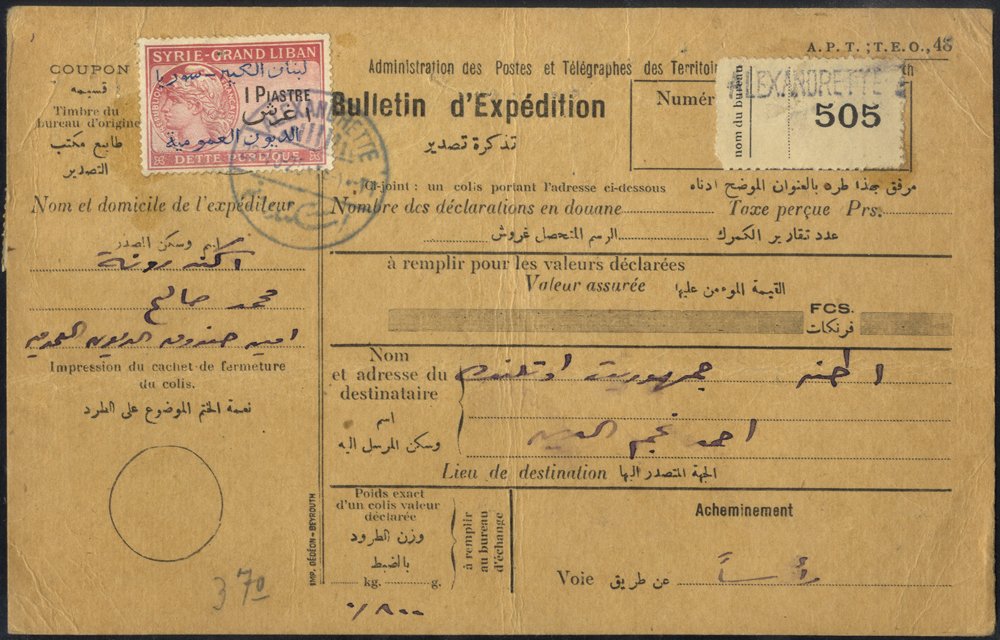 A.P.T.;T.E.O.,48
COUPON
قسيمه
Timbre du
bureau d'origine
طابع مكتب
التصدير
SYRIE-GRAND LIBAN
لبنان الكبير - سوريا
1 PIASTRE
غرش
الديون العمومية
DETTE PUBLIQUE
ALEXANDRETTE
Administration des Postes et Télégraphes des
Bulletin d'Expédition
تذكرة تصدير
Numér
nom du bureau
ALEXANDRETTE
505
Ci-joint : un colis portant l'adresse ci-dessous
مرفق بهذا طره بالعنوان الموضح ادناه
Nombre des déclarations en douane
Taxe perçue Prs.
الرسم المتحصل غروش
عدد تقارير الكمرك
Nom et domicile de l'expéditeur
اسم وسكن المصدر
محمد صالح
امين صندوق الديون العمومية
Impression du cachet de fermeture
du colis.
نعمة الختم الموضوع على الطرد
370
à remplir pour les valeurs déclarées
Valeur assurée
القيمة الموءمن عليها
FCS.
فرنكات
Nom
et adresse du
destinataire
اسم
وسكن المرسل اليه
اطنه
احمد نجم الدين
Lieu de destination
الجهة المتصدر اليها
Poids exact
d'un colis valeur
déclarée
وزن الطرود
بالضبط
kg. g.
à remplir
au bureau
d'échange
٠/٨٠٠
Acheminement
Voie
عن طريق
رأساً
IMP. DÉDÉON-BEYROUTH